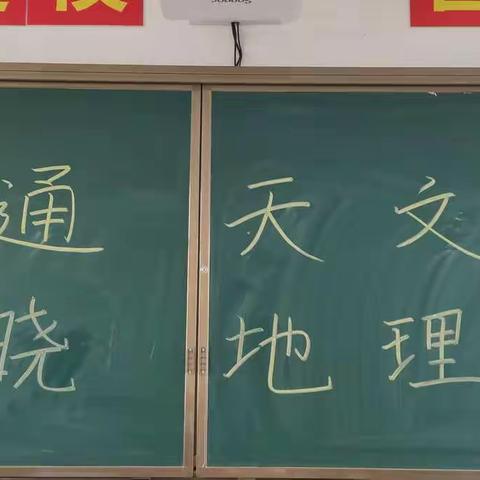 通 天 文
晓 地 理